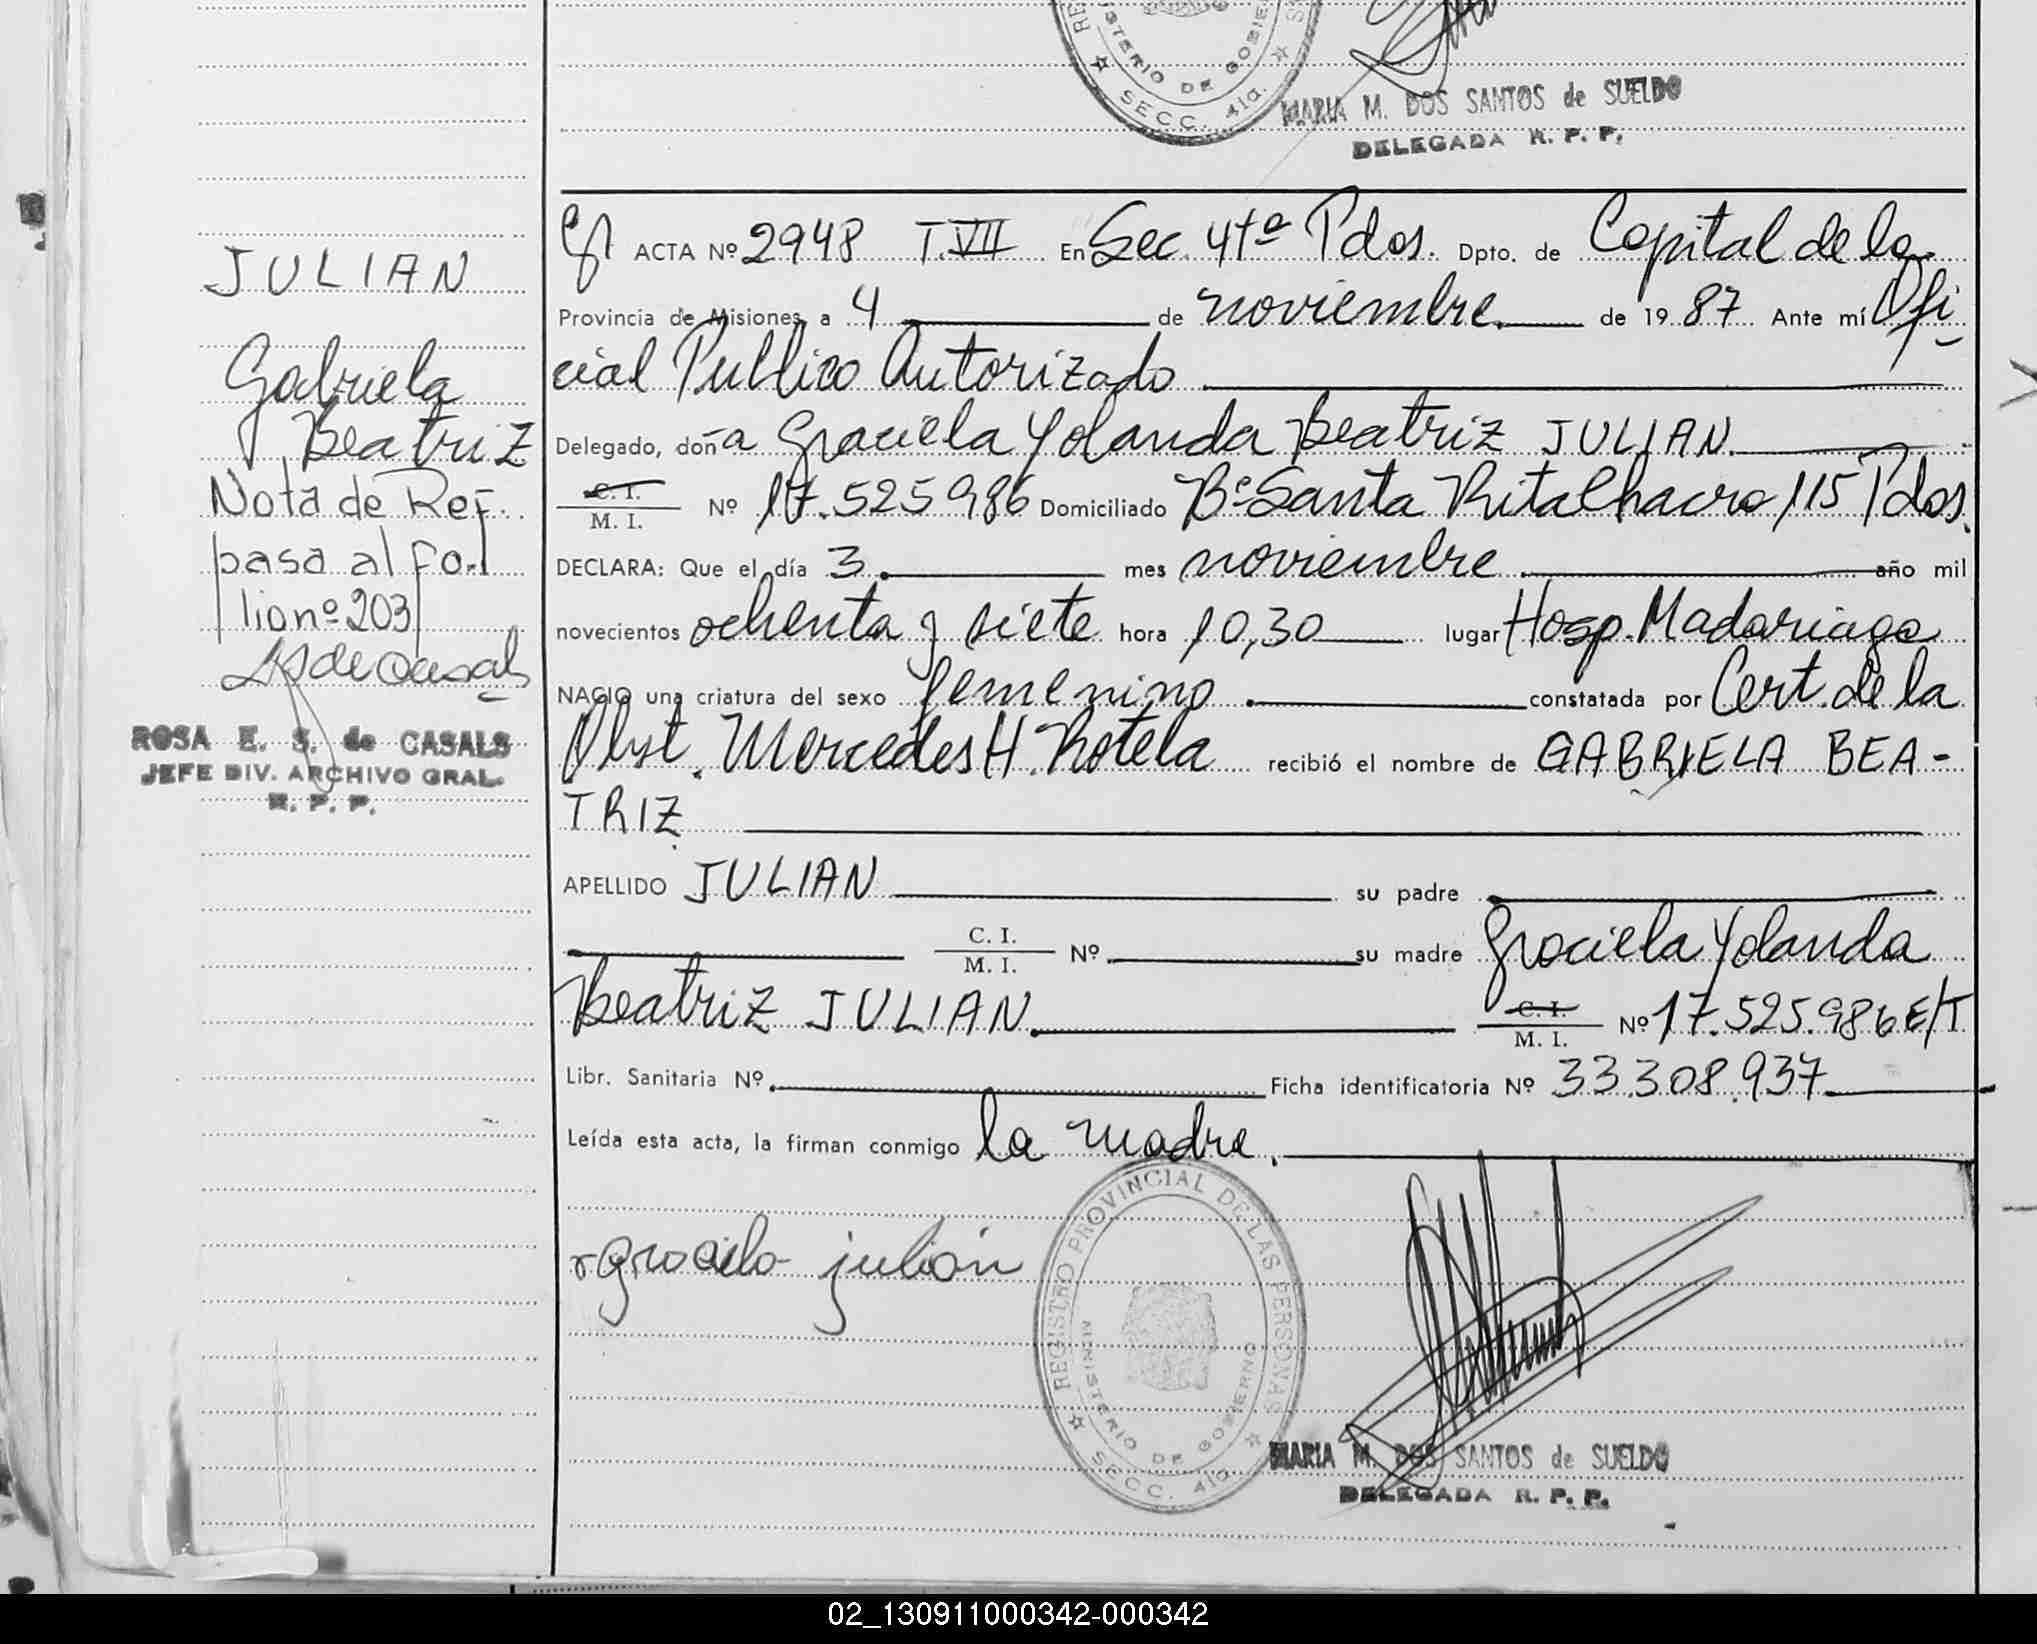 MINISTERIO DE GOBIERNO
SECC. 4ta.
MARIA M. DOS SANTOS de SUELDO
DELEGADA R. P. P.
JULIAN
Gabriela
Beatriz
Nota de Ref.
pasa al fo-
lio nº 203
ROSA E. S. de CASALS
JEFE DIV. ARCHIVO GRAL.
R. P. P.
ACTA Nº 2948 T.VII En Sec. 4ta Pdos. Dpto. de Capital de la
Provincia de Misiones, a 4 de noviembre de 19 87 Ante mí Ofi-
cial Publico Autorizado
Delegado, doña Graciela Yolanda Beatriz JULIAN.
C. I.
M. I. Nº 17.525986 Domiciliado Bº Santa Rita Chacra 115 Pdos.
DECLARA: Que el día 3 mes noviembre año mil
novecientos ochenta y siete hora 10,30 lugar Hosp. Madariaga
NACIO una criatura del sexo femenino constatada por Cert. de la
Obst. Mercedes H. Rotela recibió el nombre de GABRIELA BEA-
TRIZ
APELLIDO JULIAN su padre
C. I.
M. I. Nº su madre Graciela Yolanda
Beatriz JULIAN. C. I.
M. I. Nº 17.525.986 E/T
Libr. Sanitaria Nº Ficha identificatoria Nº 33.308.937
Leída esta acta, la firman conmigo la madre.
graciela julian
REGISTRO PROVINCIAL DE LAS PERSONAS
MINISTERIO DE GOBIERNO
SECC. 4ta.
MARIA M. DOS SANTOS de SUELDO
DELEGADA R. P. P.
02_130911000342-000342